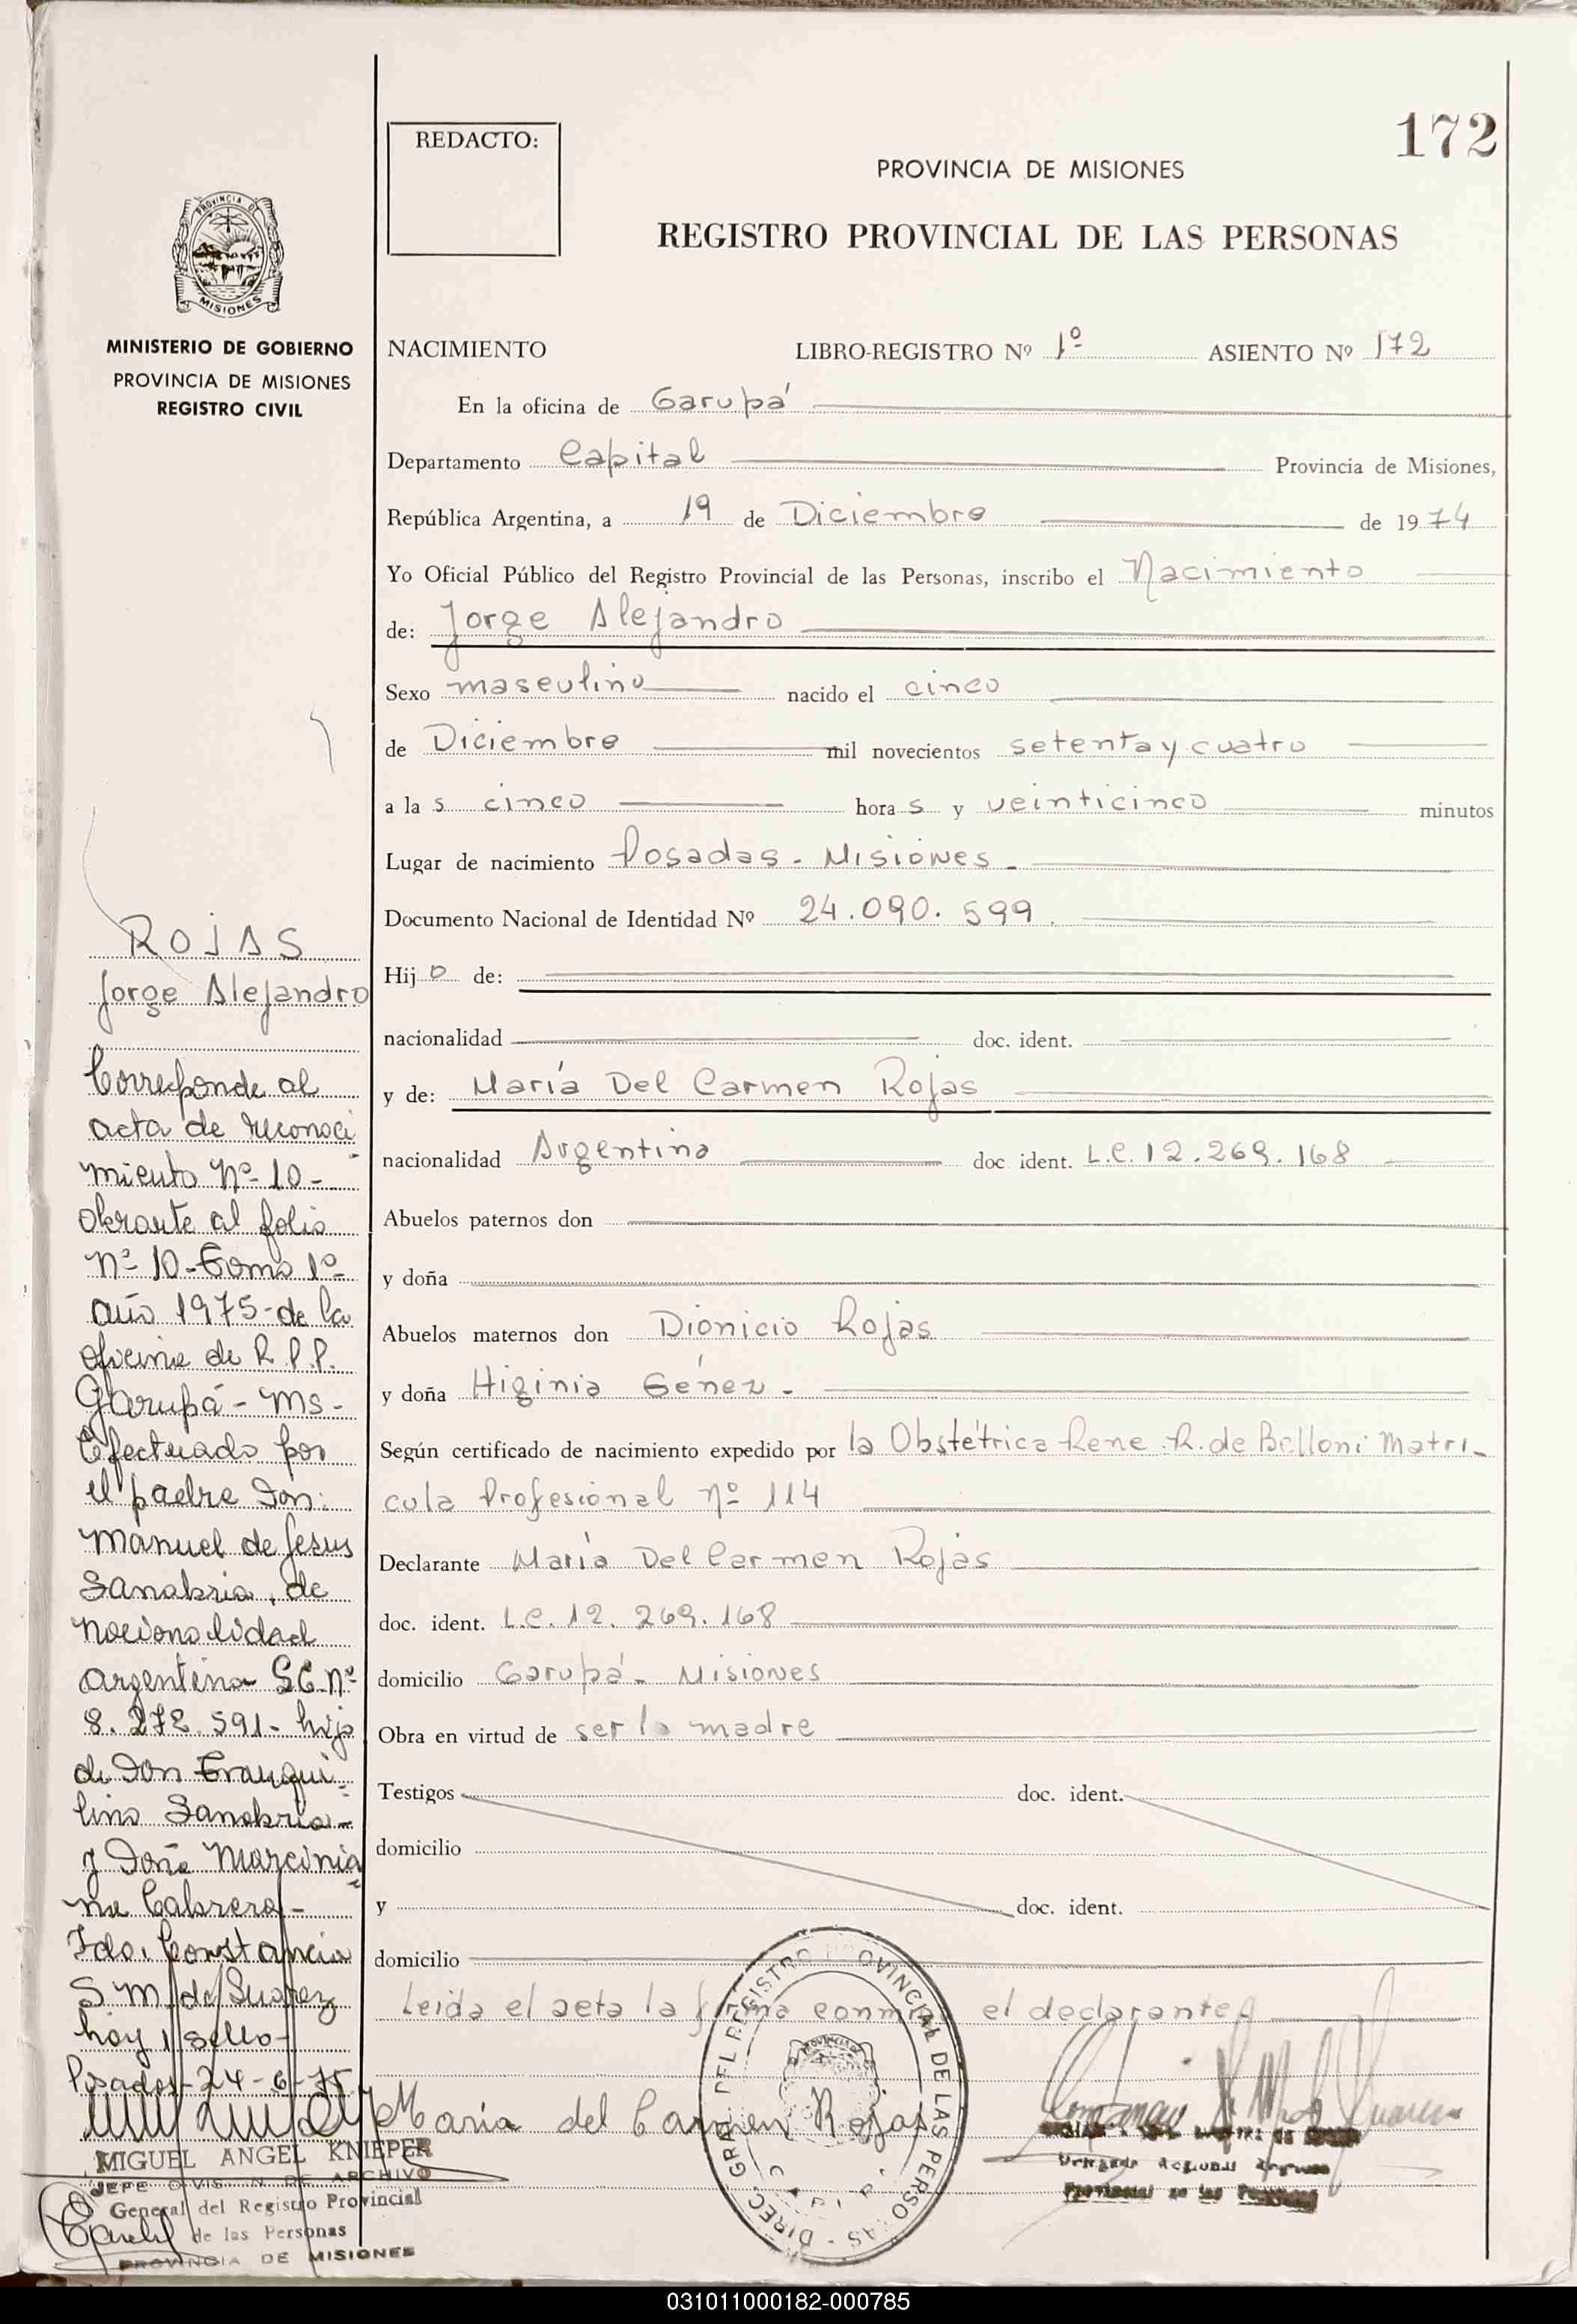 172
REDACTO:
PROVINCIA DE MISIONES
REGISTRO PROVINCIAL DE LAS PERSONAS
PROVINCIA DE
MISIONES
MINISTERIO DE GOBIERNO
PROVINCIA DE MISIONES
REGISTRO CIVIL
NACIMIENTO LIBRO-REGISTRO Nº 1º ASIENTO Nº 172
En la oficina de Garupá
Departamento Capital Provincia de Misiones,
República Argentina, a 19 de Diciembre de 1974
Yo Oficial Público del Registro Provincial de las Personas, inscribo el Nacimiento
de: Jorge Alejandro
Sexo masculino nacido el cinco
de Diciembre mil novecientos setenta y cuatro
a la s cinco hora s y veinticinco minutos
Lugar de nacimiento Posadas - Misiones -
Documento Nacional de Identidad Nº 24.090.599
Hij o de:
nacionalidad doc. ident.
y de: María Del Carmen Rojas
nacionalidad Argentina doc ident. L.C. 12.269.168
Abuelos paternos don
y doña
Abuelos maternos don Dionicio Rojas
y doña Higinia Génez -
Según certificado de nacimiento expedido por la Obstétrica Rene R. de Belloni Matri-
cula Profesional nº 114
Declarante María Del Carmen Rojas
doc. ident. L.C. 12.269.168
domicilio Garupá - Misiones
Obra en virtud de ser la madre
Testigos doc. ident.
domicilio
y doc. ident.
domicilio
Leida el acta la firma conmigo el declarante
María del Carmen Rojas
DIREC. GRAL. DEL REGISTRO PROVINCIAL DE LAS PERSONAS
ROJAS
Jorge Alejandro
Corresponde al
acta de reconoci
miento Nº 10-
obrante al folio
Nº 10-Tomo 1º
año 1975-de la
oficina de R.P.P.
Garupá - Ms -
Efectuado por
el padre Don:
Manuel de Jesus
Sanabria, de
nacionalidad
argentina Nº
8.272.591- hijo
de Don Tranqui-
lino Sanabria-
y Doña Marcinia
na Cabrera -
Fdo. Constancia
S M de Suarez
hay 1 sello-
Posadas-24-6-75
MIGUEL ANGEL KNIEPER
JEFE DIVISION DE ARCHIVO
General del Registro Provincial
de las Personas
PROVINCIA DE MISIONES
031011000182-000785